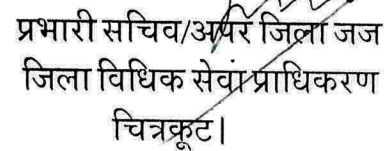 प्रभारी सचिव/अपर जिला जज
जिला विधिक सेवा प्राधिकरण
चित्रकूट।